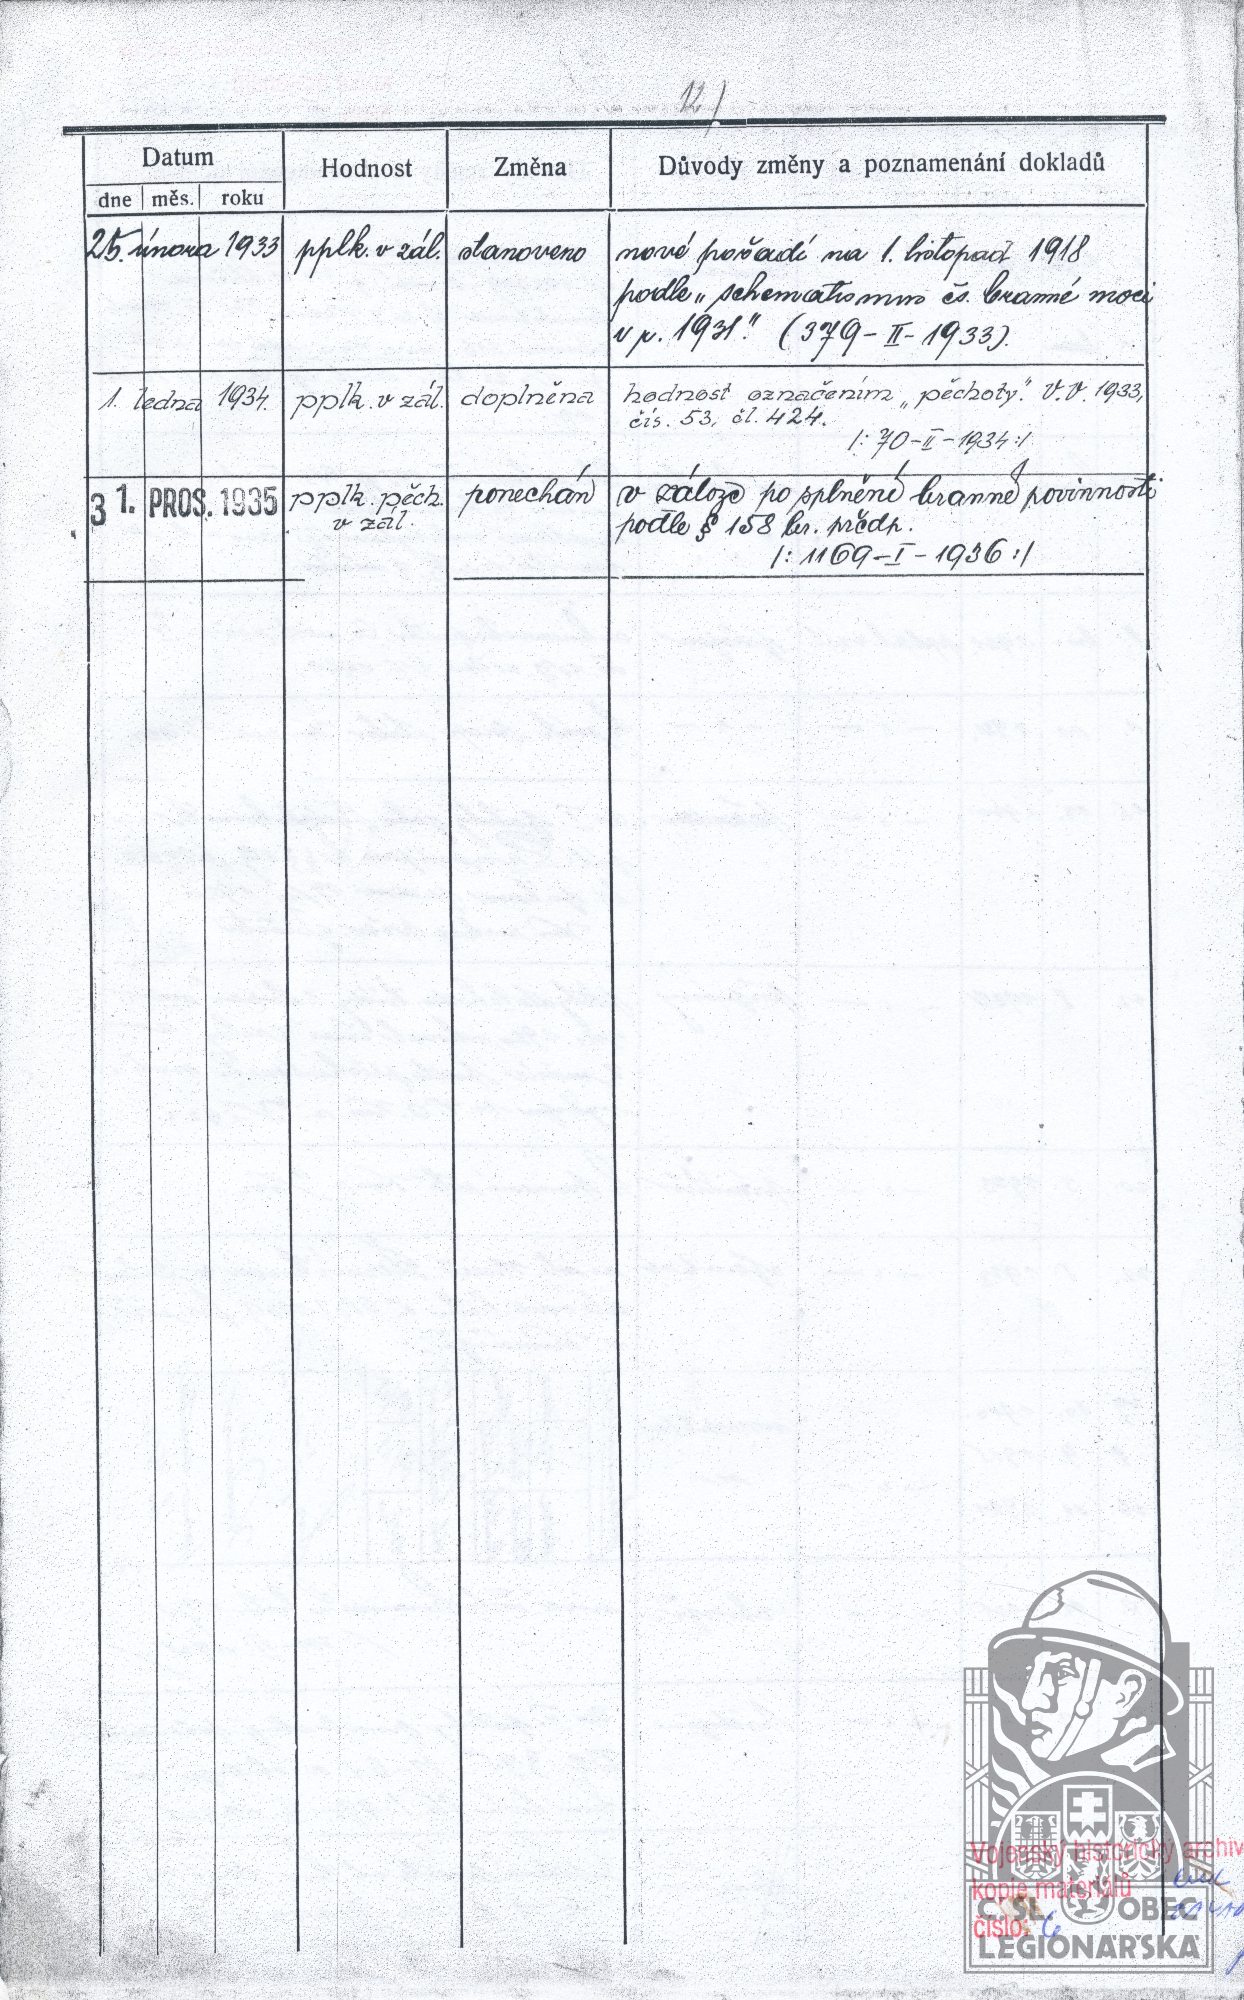 12)
Datum Hodnost Změna Důvody změny a poznamenání dokladů
dne měs. roku
25. února 1933 pplk. v zál. stanoveno nové pořadí na 1. listopad 1918
podle „schematismu čs. branné moci
v r. 1931." (379-II-1933).
1. ledna 1934. pplk. v zál. doplněna hodnost označením „pěchoty". V.V. 1933,
čís. 53, čl. 424.
/: 70-II-1934 :/
31. PROS. 1935 pplk. pěch. ponechán v záloze po splnění branné povinnosti
v zál. podle § 158 br. předp.
/: 1169-I-1936 :/
Vojenský historický archiv
kopie materiálů
číslo: 6
ČSL OBEC
LEGIONÁŘSKÁ